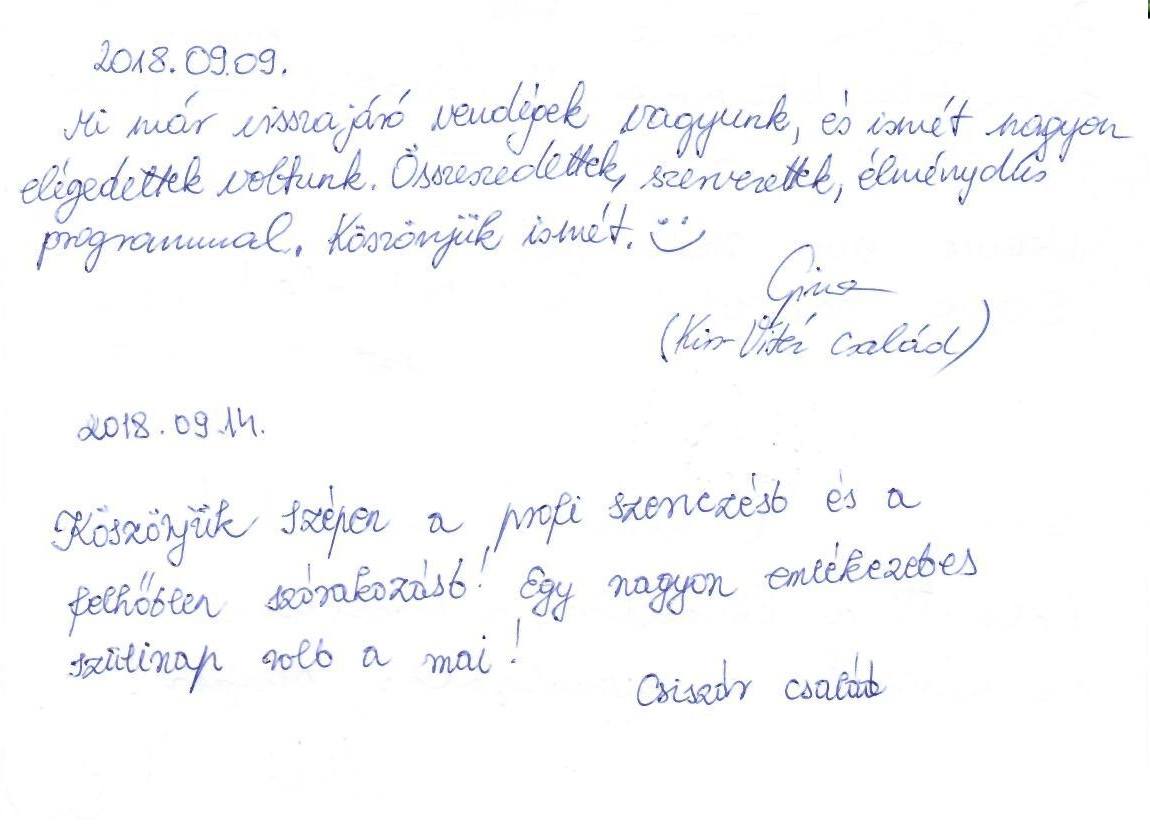 2018.09.09.
Mi már visszajáró vendégek vagyunk, és ismét nagyon
elégedettek voltunk. Összeszedettek, szervezettek, élménydús
programmal. Köszönjük ismét.
Gina
(Kiss-Vitéz család)
2018.09.14.
Köszönjük szépen a profi szervezést és a
felhőtlen szórakozást! Egy nagyon emlékezetes
szülinap volt a mai!
Csiszár család